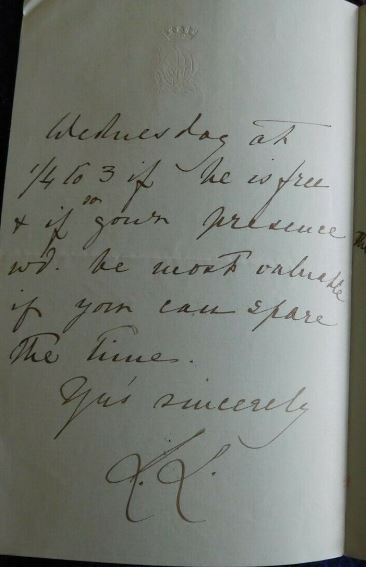 Wednesday at
1/4 to 3 if he is free
& if so your presence
wd. be most valuable
if you can spare
the time.
Yrs sincerely
K. K.